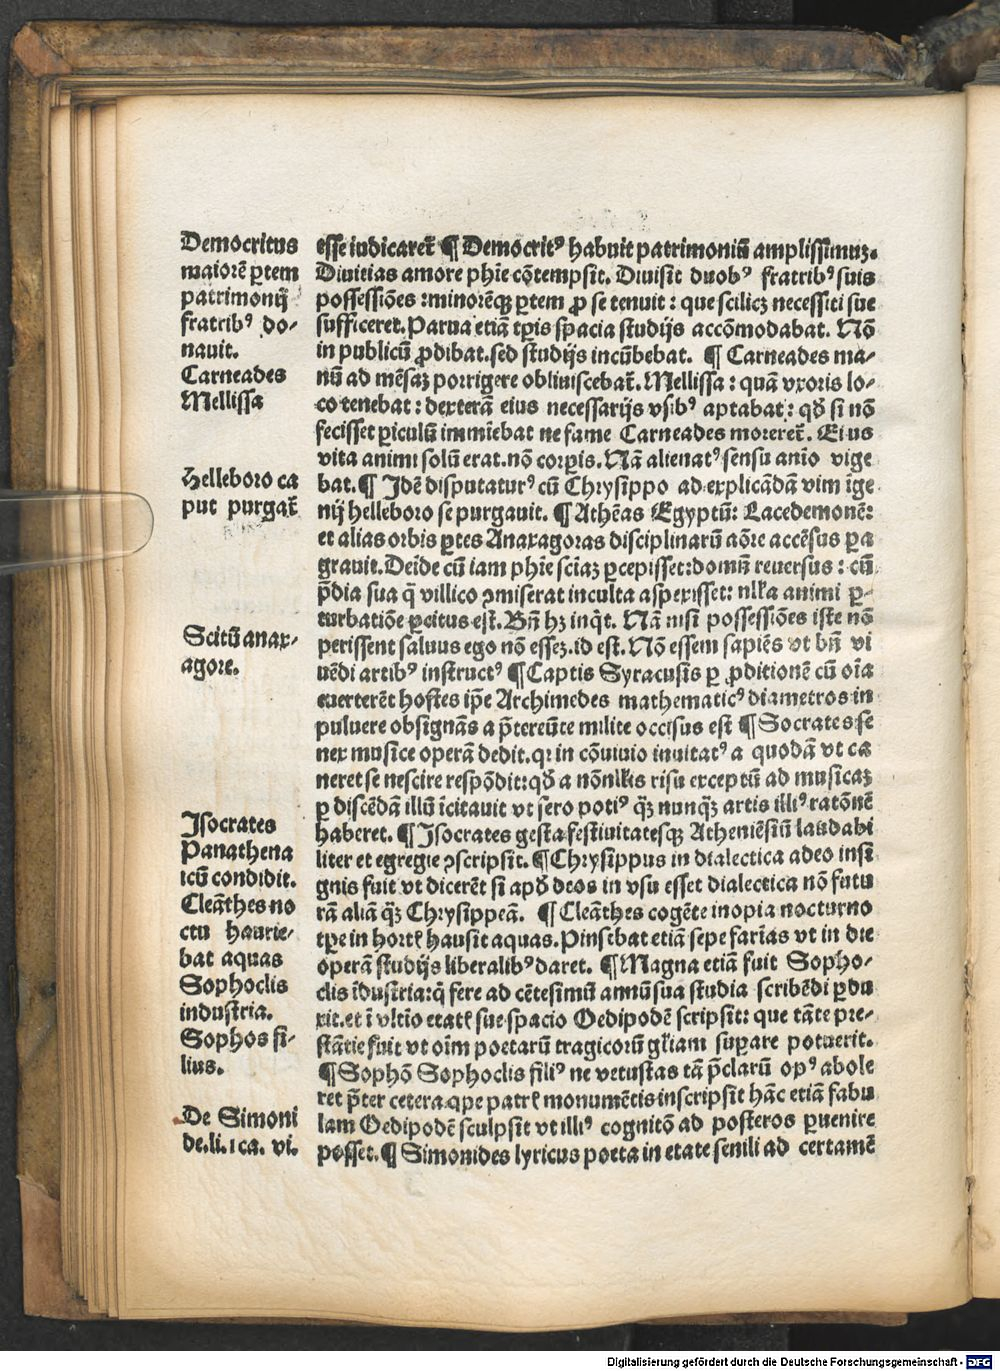 Democritus
maiorē ꝑtem
patrimonij
fratribꝰ do-
nauit.
Carneades
Mellissa
Helleboro ca
put purgat̄
Scitū anax-
agore.
Isocrates
Panathena
icū condidit.
Cleāthes no
ctu haurie-
bat aquas
Sophoclis
industria.
Sophos fi-
lius.
De Simoni
de.li.1 ca. vi.
esse iudicaret̄ ¶ Democritꝰ habuit patrimoniū amplissimuz.
Diuicias amore phīe cōtempsit. Diuisit duobꝰ fratribꝰ suis
possessiōes :minorēqꝫ ꝑtem ꝓ se tenuit : que scilicꝫ necessiti sue
sufficeret. Parua etiā tꝑis spacia studijs accōmodabat. Nō
in publicū ꝓdibat.sed studijs incūbebat. ¶ Carneades ma-
nū ad mēsaꝫ porrigere obliuiscebat̄. Mellissa : quā vxoris lo-
co tenebat : dexterā eius necessarijs vsibꝰ aptabat : qđ si nō
fecisset ꝑiculū immīebat ne fame Carneades moreret̄. Eius
vita animi solū erat.nō corꝑis. Nā alienatꝰ sensu anīo vige
bat.¶ Idē disputaturꝰ cū Chrysippo ad explicādā vim īge
nij helleboro se purgauit. ¶ Athēas Egyptū: Lacedemonē:
et alias orbis ꝑtes Anaxagoras disciplinarū aōre accēsus ꝑa
grauit. Deīde cū iam phīe sciaꝫ ꝑcepisset:domū reuersus : cū
p̄dia sua q̄ villico ꝯmiserat inculta aspexisset: nłła animi ꝑ-
turbatiōe ꝑcitus est. Bn̄ hꝫ inq̄t. Nā nisi possessiōes iste nō
perissent saluus ego nō esseꝫ.id est. Nō essem sapiēs vt bn̄ vi
uēdi artibꝰ instructꝰ ¶ Captis Syracusis ꝑ ꝓditionē cū oīa
euerterēt hostes ip̄e Archimedes mathematicꝰ diametros in
puluere obsignās a p̄tereūte milite occisus est ¶ Socrates se
nex musice operā dedit.qꝛ in cōuiuio inuitatꝰ a quodā vt ca
neret se nescire respōdit:qđ a nōnłłis risu exceptū ad musicaꝫ
ꝑdiscēdā illū īcitauit vt sero potiꝰ q̄ꝫ nunq̄ꝫ artis illiꝰ ratōnē
haberet. ¶ Isocrates gesta festiuitatesqꝫ Atheniēsiū laudabi
liter et egregie ꝯscripsit. ¶ Chrysippus in dialectica adeo insi
gnis fuit vt dicerēt si apđ deos in vsu esset dialectica nō futu
rā aliā q̄ꝫ Chrysippeā. ¶ Cleāthes cogēte inopia nocturno
tꝑe in hortꝭ hausit aquas. Pinsebat etiā sepe farīas vt in die
operā studijs liberalibꝰ daret. ¶ Magna etiā fuit Sopho-
clis īdustria:q̄ fere ad cētesimū annū sua studia scribēdi ꝑdu
xit.et ī vltīo etatꝭ sue spacio Oedipodē scripsit: que tāte pre-
stātie fuit vt oīm poetarū tragicorū głiam suꝑare potuerit.
¶ Sophō Sophoclis filiꝰ ne vetustas tā p̄clarū opꝰ abole
ret p̄ter cetera qꝑe patrꝭ monumētis inscripsit hāc etiā fabu
lam Oedipodē sculpsit vt illiꝰ cognitō ad posteros ꝑuenire
posset. ¶ Simonides lyricus poeta in etate senili ad certamē
Digitalisierung gefördert durch die Deutsche Forschungsgemeinschaft - DFG